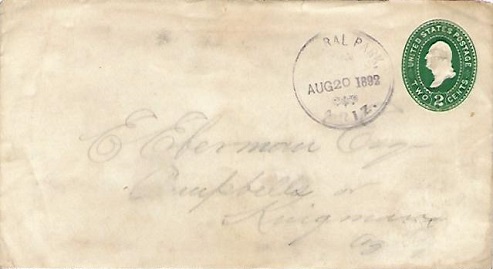 RAL PARK,
AUG 20 1892
ARIZ.
UNITED STATES POSTAGE
TWO 2 CENTS
E Eberman Esq
Campbells or
Kingman